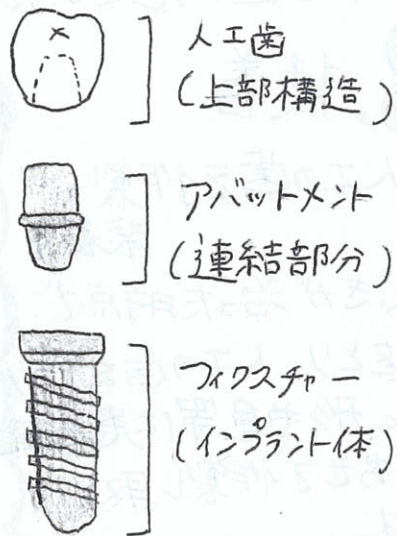 人工歯
(上部構造)
アバットメント
(連結部分)
フィクスチャー
(インプラント体)